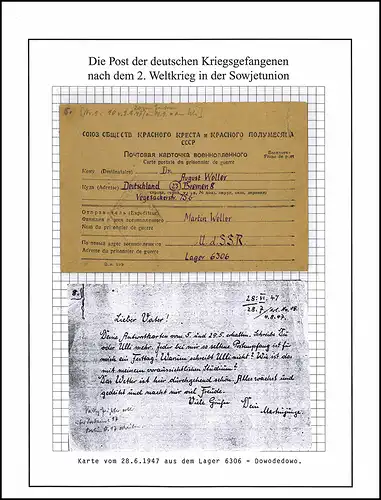 Die Post der deutschen Kriegsgefangenen
nach dem 2. Weltkrieg in der Sowjetunion
СОЮЗ ОБЩЕСТВ КРАСНОГО КРЕСТА и КРАСНОГО ПОЛУМЕСЯЦА
СССР
Почтовая карточка военнопленного
Carte postale du prisonnier de guerre
Бесплатно
Franc de port
Кому (Destinataire) Dr.
August Woller
Куда (Adresse) Deutschland (23) Bremen 8
Vegesackerstr. 156
Отправитель (Expéditeur)
Фамилия и имя военнопленного Martin Woller
Nom du prisonnier de guerre
UdSSR
Почтовый адрес военнопленного
Adresse du prisonnier de guerre
Lager 6306
8.
28. VI. 47
28.7
4.8.47
Lieber Vater!
Deine Antwortkarten vom 5. und 29.5. erhalten. Schreibt Du
oder Ulli mehr. Jeder bei mir so seltene Postempfang ist für
mich ein Festtag! Warum schreibt Ulli nicht? Wie ist das
mit meinem voraussichtlichen Studium?
Das Wetter ist hier durchgehend schön. Alles wächst und
gedeiht und macht mir viel Freude.
Viele Grüße Dein
Karte vom 28.6.1947 aus dem Lager 6306 - Dowodedowo.